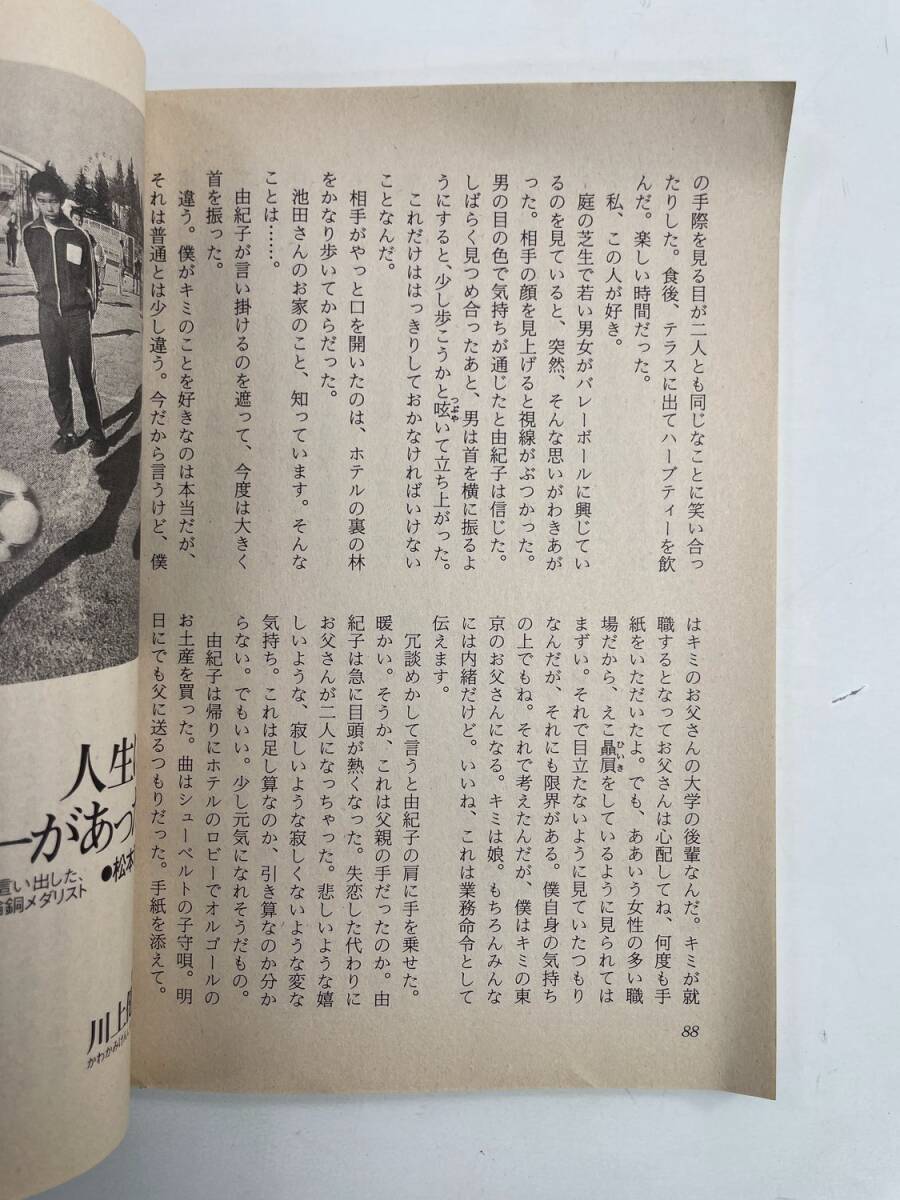 の手際を見る目が二人とも同じなことに笑い合っ
たりした。食後、テラスに出てハーブティーを飲
んだ。楽しい時間だった。
私、この人が好き。
庭の芝生で若い男女がバレーボールに興じてい
るのを見ていると、突然、そんな思いがわきあが
った。相手の顔を見上げると視線がぶつかった。
男の目の色で気持ちが通じたと由紀子は信じた。
しばらく見つめ合ったあと、男は首を横に振るよ
うにすると、少し歩こうかと呟いて立ち上がった。
つぶや
これだけははっきりしておかなければいけない
ことなんだ。
相手がやっと口を開いたのは、ホテルの裏の林
をかなり歩いてからだった。
池田さんのお家のこと、知っています。そんな
ことは……。
由紀子が言い掛けるのを遮って、今度は大きく
首を振った。
違う。僕がキミのことを好きなのは本当だが、
それは普通とは少し違う。今だから言うけど、僕
はキミのお父さんの大学の後輩なんだ。キミが就
職するとなってお父さんは心配してね、何度も手
紙をいただいたよ。でも、ああいう女性の多い職
場だから、えこ贔屓をしているように見られては
ひいき
まずい。それで目立たないように見ていたつもり
なんだが、それにも限界がある。僕自身の気持ち
の上でもね。それで考えたんだが、僕はキミの東
京のお父さんになる。キミは娘。もちろんみんな
には内緒だけど。いいね、これは業務命令として
伝えます。
冗談めかして言うと由紀子の肩に手を乗せた。
暖かい。そうか、これは父親の手だったのか。由
紀子は急に目頭が熱くなった。失恋した代わりに
お父さんが二人になっちゃった。悲しいような嬉
しいような、寂しいような寂しくないような変な
気持ち。これは足し算なのか、引き算なのか分か
らない。でもいい。少し元気になれそうだもの。
由紀子は帰りにホテルのロビーでオルゴールの
お土産を買った。曲はシューベルトの子守唄。明
日にでも父に送るつもりだった。手紙を添えて。
88
人生
ーがあっ
●松本
置い出した、
銅メダリスト
川上
かわかみ